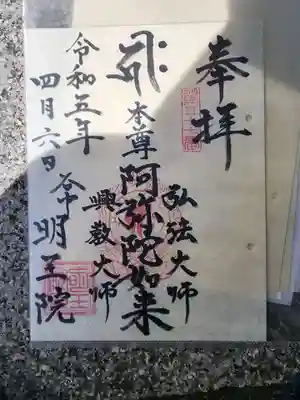 奉拝
弘法大師
本尊阿弥陀如来
興教大師
令和五年
四月六日
谷中明王院